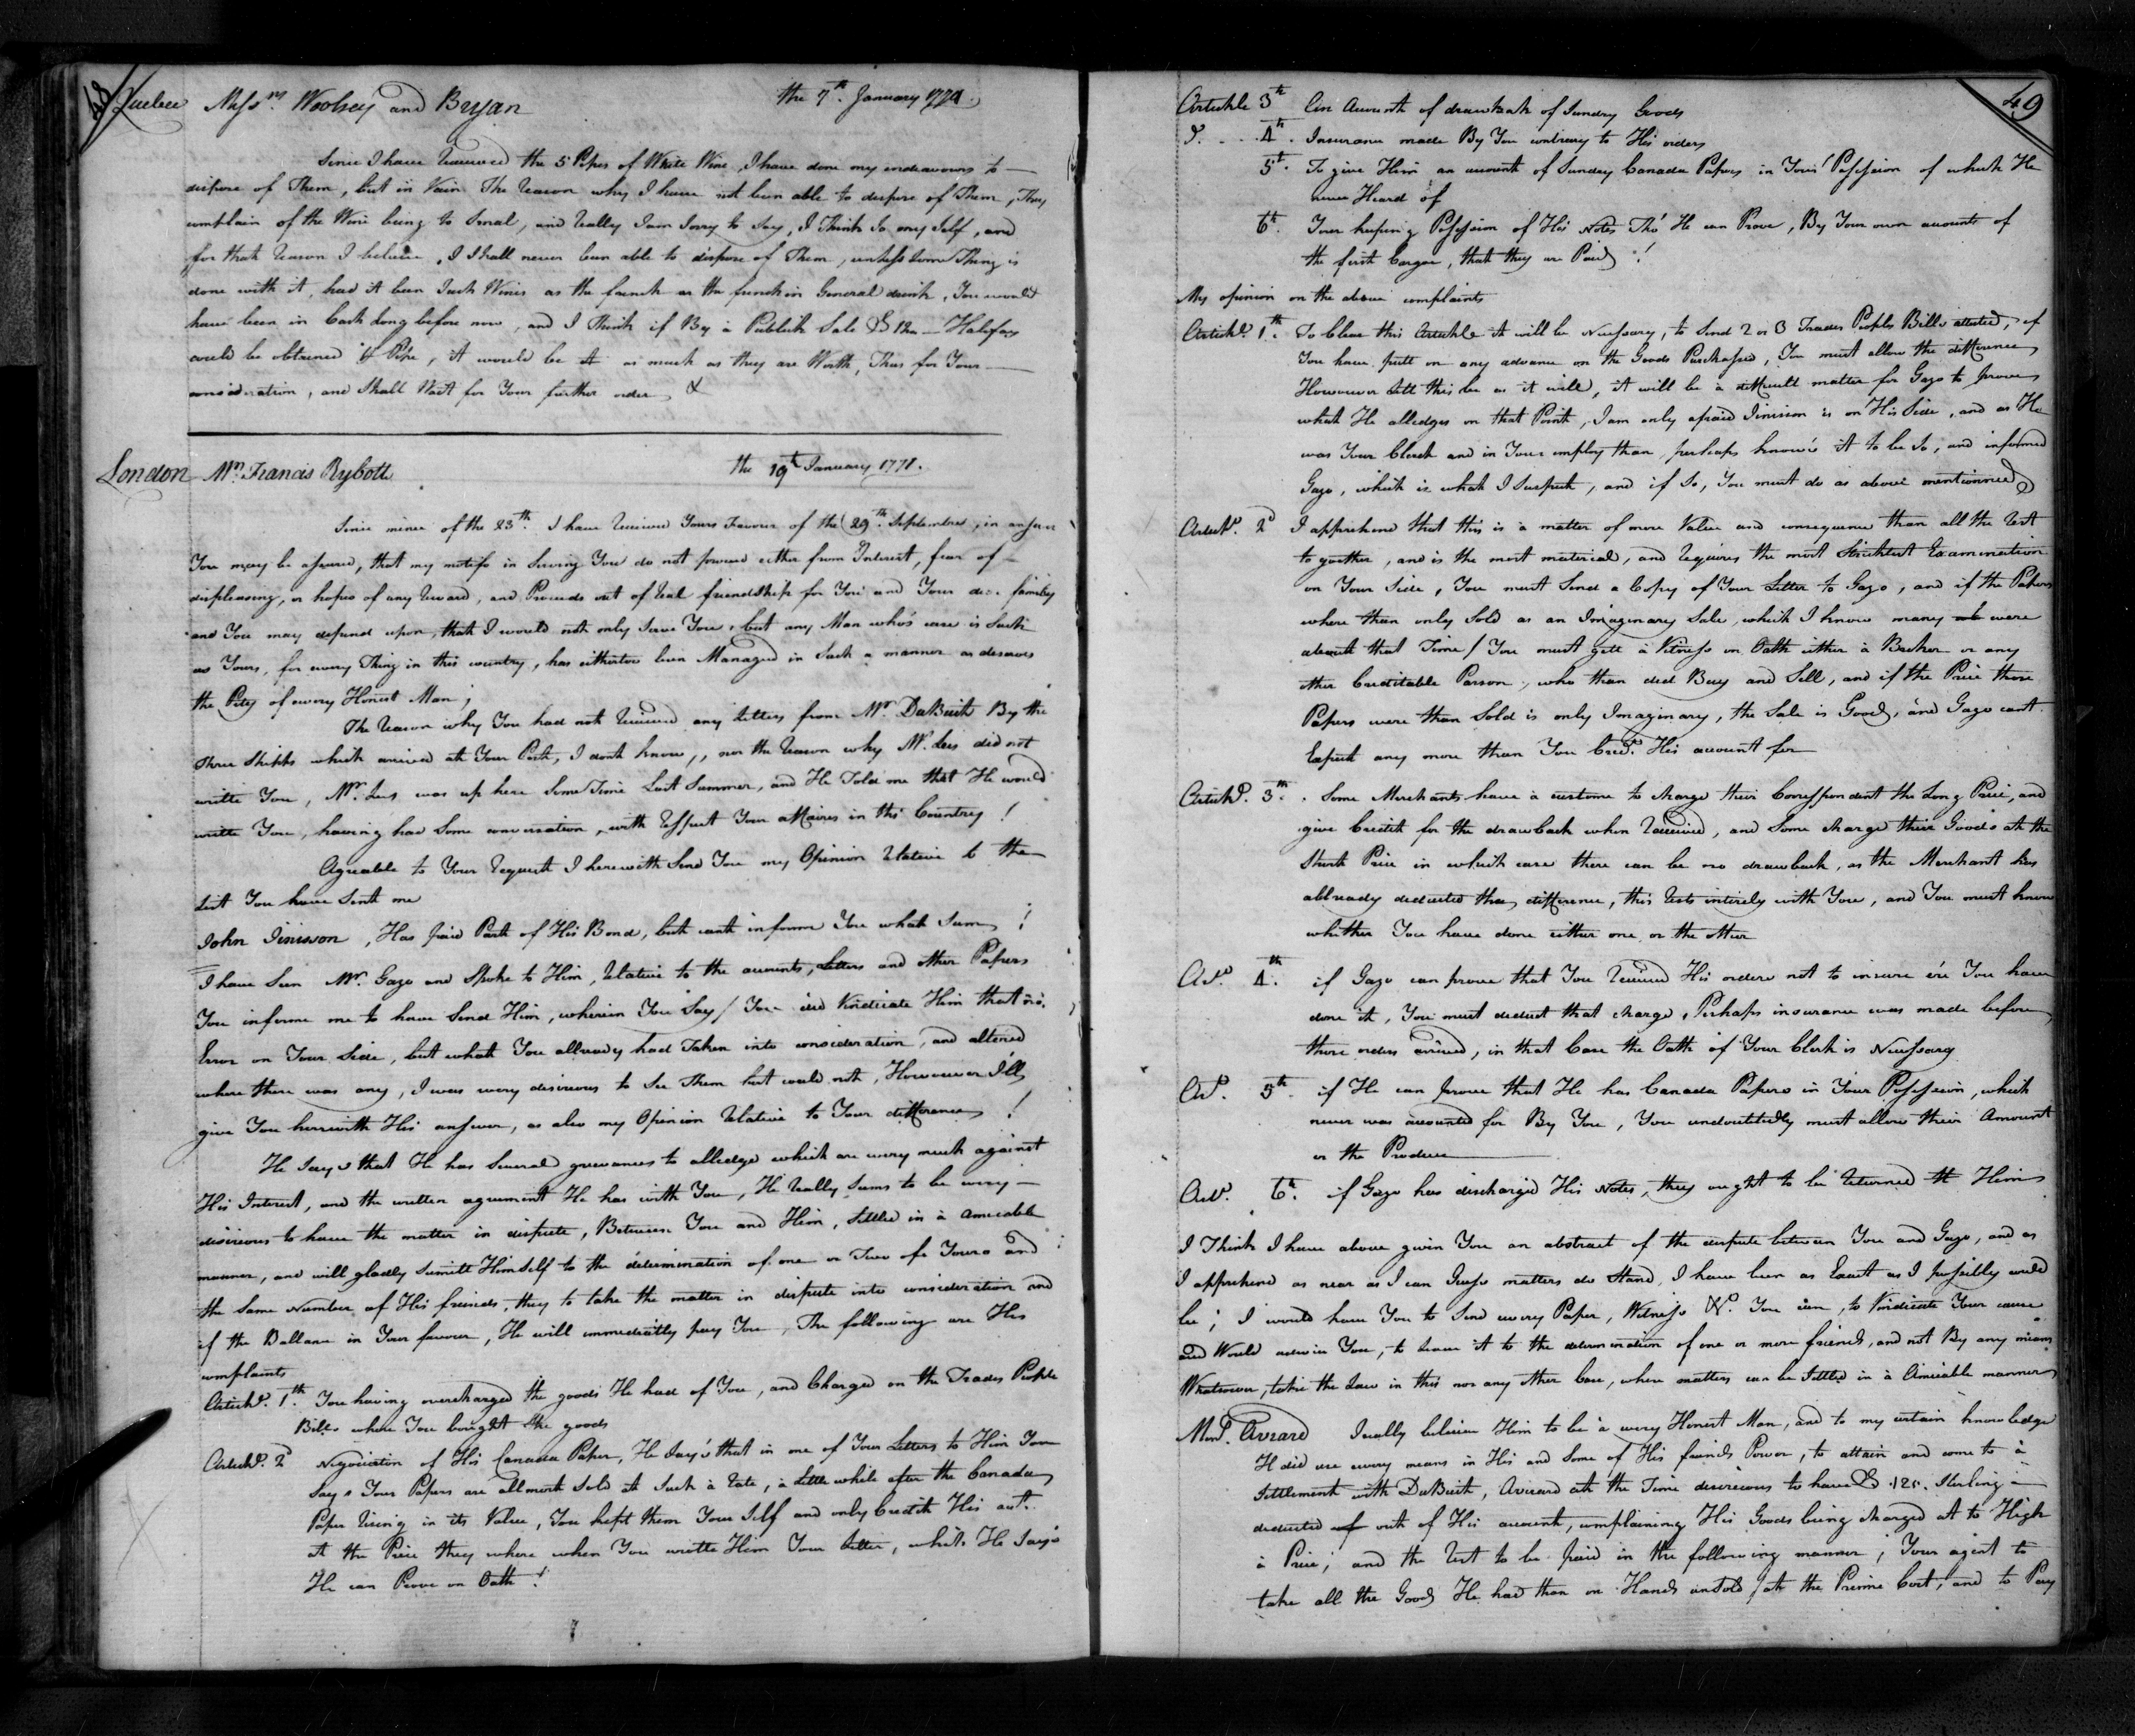 48
Quebec Messrs. Woolsey and Bryan the 7th. January 1771.
Since I have Received the 5 Pipes of White Wine, I have done my endeavours to
dispose of Them, but in Vain The Reason why I have not been able to dispose of Them, They
complain of the Wine being to Smal, and Really I am Sorry to Say, I Think So my Self, and
for that Reason I believe, I Shall never been able to dispose of Them, unless Some Thing is
done with it, had it been Such Wines as the french as the french in General drink, You would
have been in Cash Long before now, and I Think if By à Publick Sale £ 12 Halifax
could be obtained Pr. Pipe, it would be as much as they are Worth, Thus for Your
consideration, and Shall Wait for Your further orders &
London Mr. Francis Rybott the 19th January 1771.
Since mine of the 23th. I have Received Yours Favour of the 29th. September, in answer
You may be assured, that my motifs in Serving You do not proceed either from Interest, fear of
displeasing, or hopes of any Reward, and Proceeds out of Real friendship for You and Your family
and You may depend upon, that I would not only Serve You, but any Man who's case is Such
as Yours, for every Thing in this country, has hitherto been Managed in Such a manner as deserves
the Pity of every Honest Man;
The Reason why You had not Received any Letters from Mr. DuBuith By the
three Shipps which arrived at Your Port, I dont know,, nor the Reason why Mr. Lees did not
write You, Mr. Lees was up here Some Time Last Summer, and He Told me that He would
write You, having had Some conversation, with Respect Your affaires in this Country!
Agreable to Your Request I herewith Send You my Opinion Relative to the
List You have Sent me
John Jinisson, Has paid Part of His Bond, but cant informe You what Sum!
I have Seen Mr. Gazo and Spoke to Him, Relative to the accounts, Letters and other Papers
You informe me to have Send Him, wherein You Say / You did Vindicate Him that no
Error on Your Side, but what You allready had Taken into consideration, and altered
where there was any, I was very desireous to See Them but could not, However I'll
give You herewith His answer, as also my Opinion Relative to Your differences!
He Say's that He has Several grievances to alledge which are very much against
His Interest, and the written agreement He has with You, He Really Seems to be very
desireous to have the matter in dispute, Between You and Him, Settled in à amicable
manner, and will gladly Sumitt Himself to the détermination of one or Two of Yours and
the Same Number of His friends, they to take the matter in dispute into consideration and
if the Ballance in Your favour, He will immediatly pay You, The following are His
complaints
Article. 1th. You having overcharged the goods He had of You, and Charged on the Trades People
Bills where You bought the goods
Article. 2d Negociation of His Canada Paper, He Say's that in one of Your Letters to Him You
Say's Your Papers are allmost Sold at Such à Rate, à Little while after the Canada
Paper Rising in its Value, You kept them Your Self and only Credit His act.
at the Price they where when You writte Him Your Letter, which He Say's
He can Prove on Oath!
49
Article 3th an Account of drawback of Sundry Goods
Do. 4th. Insurance made By You contrary to His orders
5th. To give Him an account of Sunday Canada Papers in Your Possession of which He
never Heard of
6th. Your keeping Possession of His Notes Tho' He can Prove, By Your own accounts of
the first Cargoe, that they are Paid!
My opinion on the above complaints
Article. 1th. To Clear this Article it will be Necessary, to Send 2 or 3 Trades Peoples Bills attested, if
You have putt on any advance on the Goods Purchased, You must allow the difference
However Lett this be as it will, it will be à difficult matter for Gazo to prove
what He alledges on that Point, I am only afraid Jinisson is on His Side, and as He
was Your Clerck and in Your employ than, perhaps know's it to be So, and informed
Gazo, which is what I Suspect, and if So, You must do as above mentionned
Article. 2d I apprehend that this is à matter of more Value and consequence than all the Rest
to geather, and is the most material, and Requires the most Strictest Examination
on Your Side, You must Send a Copy of Your Letter to Gazo, and if the Papers
where than only Sold as an Imaginary Sale which I know many were
about that Time / You must gett à Witness on Oath either à Broker or any
other Creditable Parson, who than did Buy and Sell, and if the Price those
Papers were than Sold is only Imaginary, the Sale is Good, and Gazo cant
Expect any more than You Credt. His account for
Article. 3th. Some Merchants have à custome to charge their Correspondent the Long Price, and
give Credit for the drawback when Received, and Some charge their Goods at the
Short Price in which case there can be no drawback, as the Merchant has
allready deducted the difference, this Rests intirely with You, and You must know
whither You have done either one or the other
Art. 4th. if Gazo can prove that You Received His orders not to insure e're You have
done it, You must deduct that charge, Perhaps insurance was made before
those orders arrived, in that Case the Oath of Your Clerk is Necessary
Art. 5th. if He can prove that He has Canada Papers in Your Possession, which
never was accounted for By You, You undoubtedly must allow their Amount
or the Produce
Art. 6th. if Gazo has discharged His Notes, they ought to be Returned to Him
I Think I have above given You an abstract of the dispute between You and Gazo, and as
I apprehend as near as I can Guess matters do Stand, I have been as Exact as I possibly could
be; I would have You to Send every Paper, Witness &c. You can, to Vindicate Your cause
and Would advise You, to Leave it to the determination of one or more friends, and not By any means
Whatsoever, take the Law in this nor any other Case, where matters can be Settled in à Amicable manner
Monsr. Avrard I really believe Him to be à very Honest Man, and to my certain knowledge
H did use every means in His and Some of His friends Power, to attain and come to à
Settlement with DuBuith, Avrard at the Time desireous to have £ 120. Sterling
deducted out of His account, complaining His Goods being charged at to High
à Price; and the Rest to be paid in the following manner; Your agent to
take all the Goods He had than on Hands unsold / at the Prime Cost, and to Pay